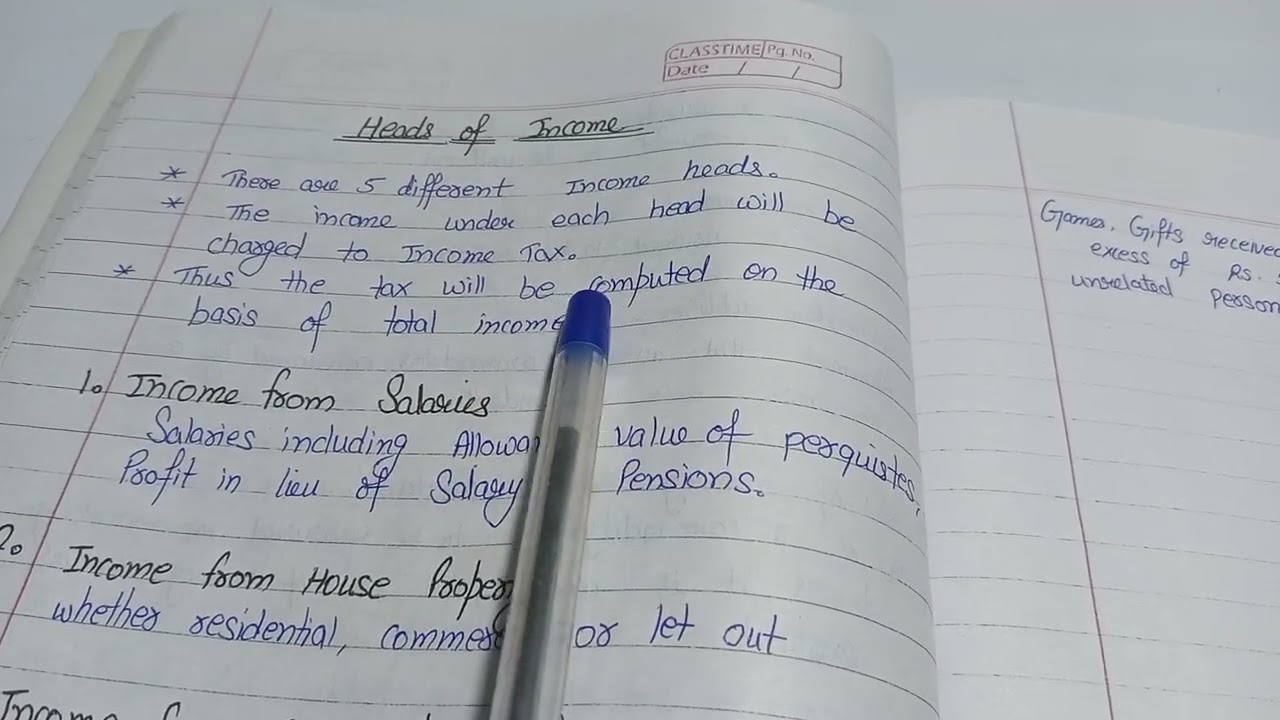 CLASSTIME Pg. No.
Date / /
Heads of Income
* There are 5 different Income heads.
* The income under each head will be
charged to Income Tax.
* Thus the tax will be computed on the
basis of total income
1. Income from Salaries
Salaries including value of perquistes,
Profit in lieu of Salary Pensions.
2. Income from House
whether residential, or let out
Income
Games, Gifts received
excess of Rs.
unrelated person